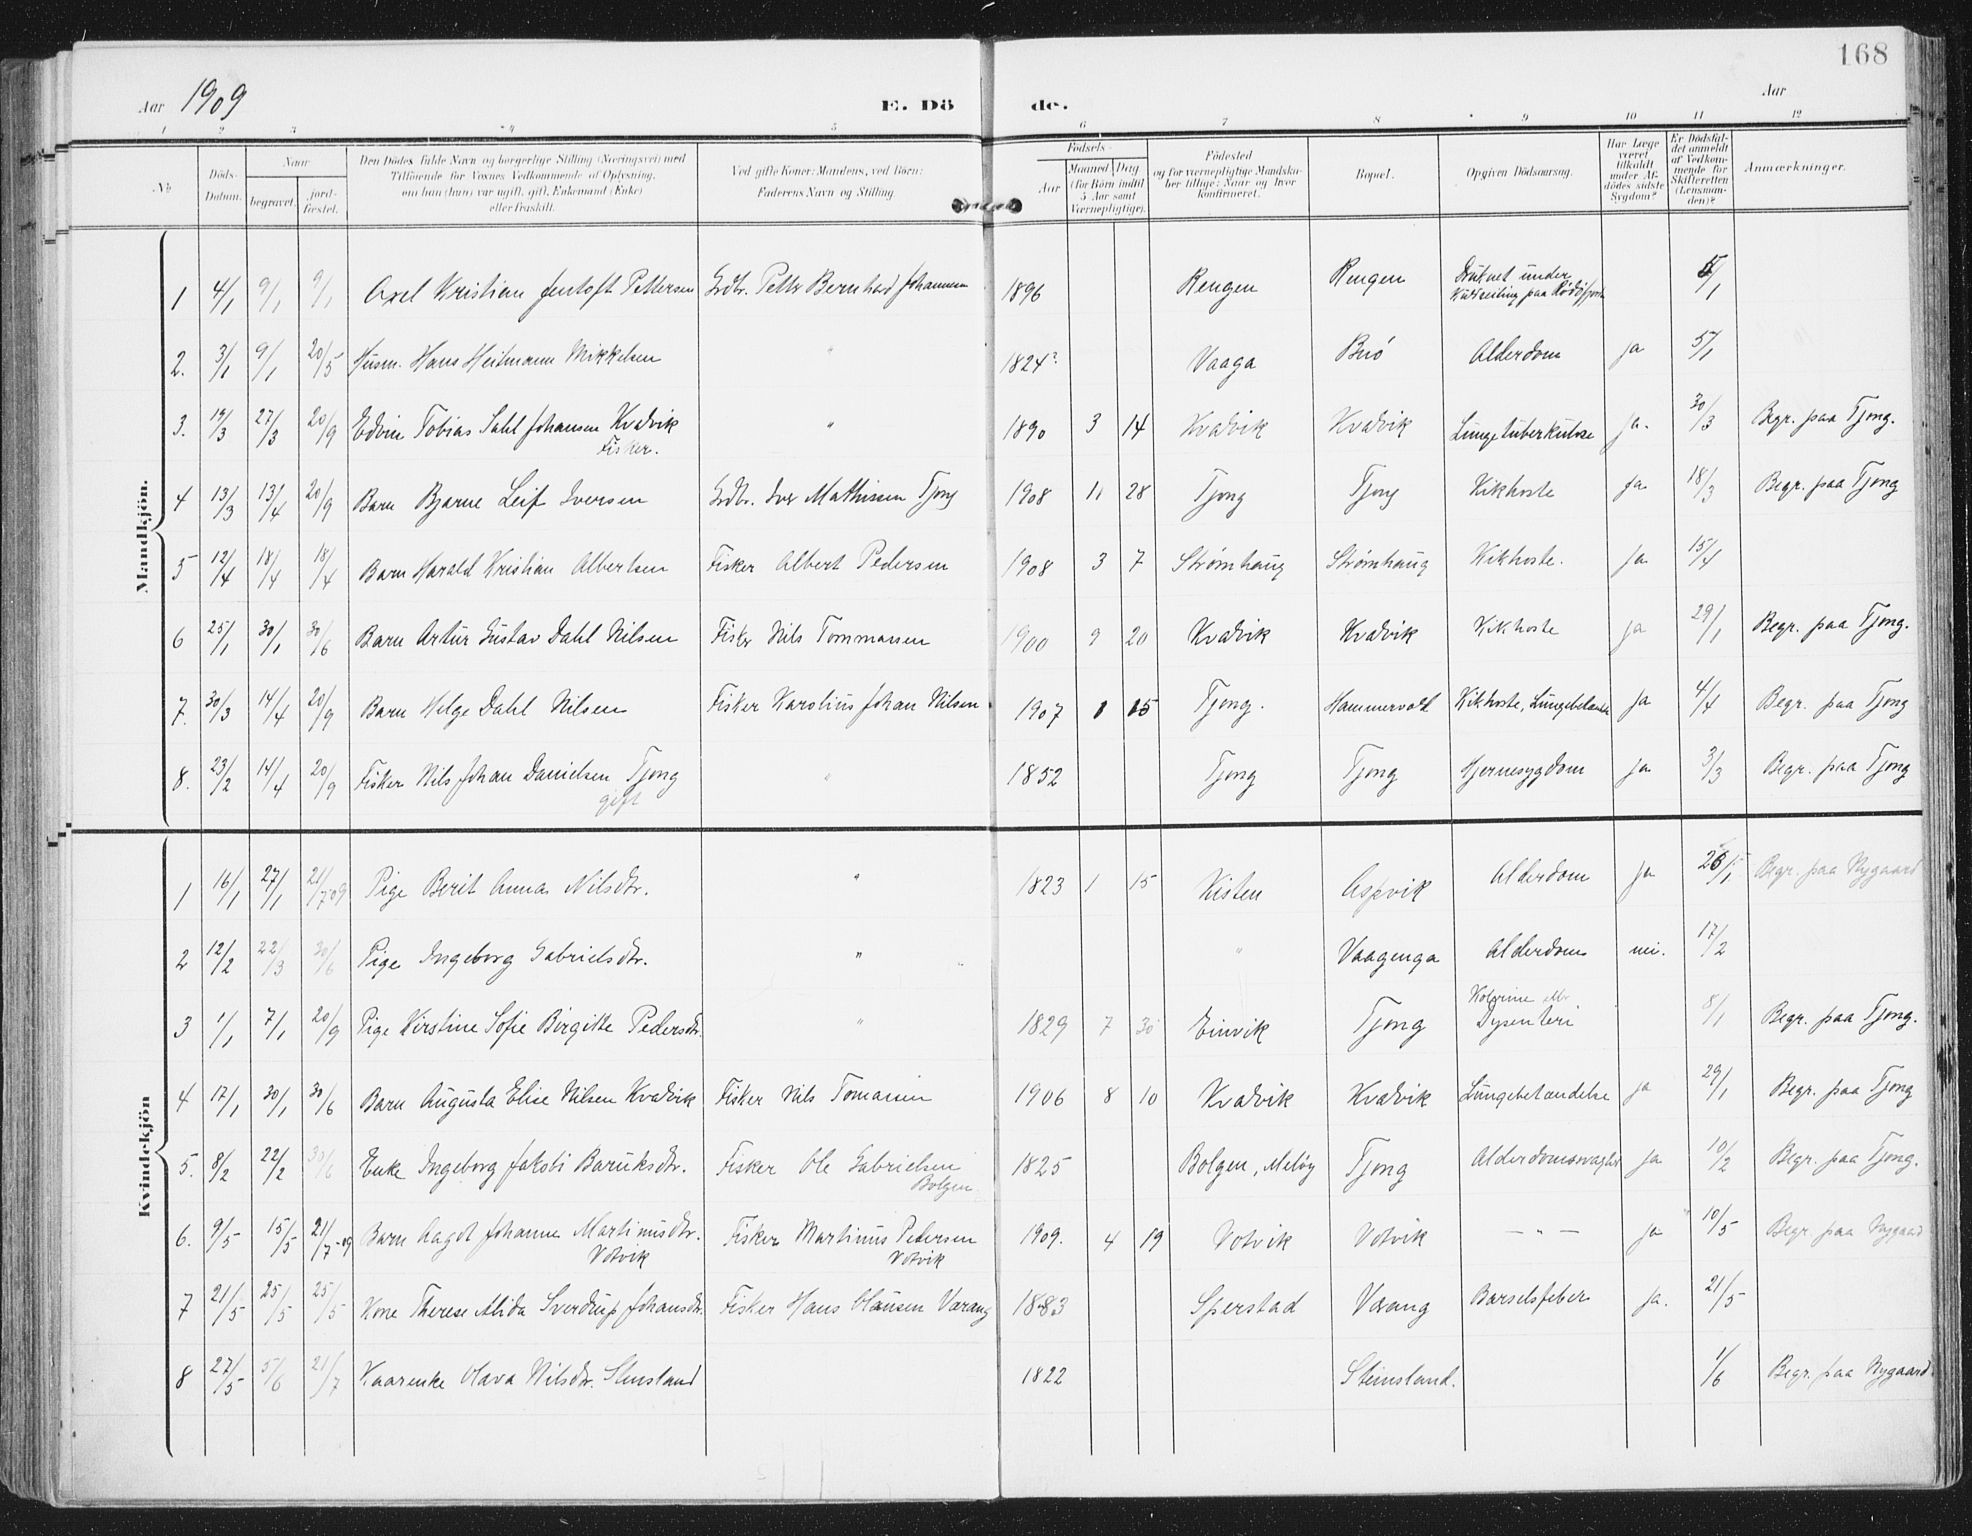 168
Aar 1909 E. Dö de. Aar
1 2 3 4 5 6 7 8 9 10 11 12
No
Döds-Datum.
Naar
begravet.
jord-fæstet.
Den Dödes fulde Navn og borgerlige Stilling (Næringsvei) med
Tilföiende for Voxnes Vedkommende af Oplysning,
om han (hun) var ugift, gift, Enkemand (Enke)
eller fraskilt.
Ved gifte Koner: Mandens, ved Börn:
Faderens Navn og Stilling.
Födsels-
Aar
Maaned Dag
(for Börn indtil
5 Aar samt
Værnepligtige).
Födested
og for værnepligtige Mandskaber tillige: Naar og hvor
konfirmeret.
Bopæl.
Opgiven Dödsaarsag.
Har Læge
været
tilkaldt
under Af-
dödes sidste
Sygdom?
Er Dödsfal-
det anmeldt
af Vedkom-
mende for
Skifteretten
(Lensman-
den)?
Anmærkninger.
Mandkjön.
1 4/1 9/1 9/1 Axel Kristian Jentoft Pettersen Grdbr. Petter Bernhard Johannesen 1896 Rengen Rengen Druknet under Kuldseiling paa Rödöfjord 5/1
2. 3/1 9/1 20/5 Husm. Hans Heitmann Mikkelsen " 1824? Vaaga Buö Alderdom ja 5/1
3. 19/3 27/3 20/9 Edvin Tobias Dahl Johansen Kvadvik " 1890 3 14 Kvadvik Kvadvik Lungetuberkulose ja. 30/3 Begr. paa Tjong.
Fisker.
4 13/3 13/4 20/9 Barn Bjarne Leif Iversen Grdbr. Iver Mathissen Tjong 1908 11 28 Tjong Tjong Kikhoste ja 18/3 Begr. paa Tjong
5 12/4 18/4 18/4 Barn Harald Kristian Albertsen Fisker Albert Pedersen 1908 3 7 Strømhaug Strømhaug Kikhoste. ja 15/4
6 25/1 30/1 30/6 Barn Artur Gustav Dahl Nilsen Fisker Nils Tommassen 1900 9 20 Kvadvik Kvadvik Kikhoste ja 29/1 Begr. paa Tjong.
7. 30/3 14/4 20/9 Barn Helge Dahl Nilsen Fisker Karolius Johan Nilsen 1907 1 15 Tjong. Hammervold Kikhoste, Lungebetændelse ja 4/4 Begr. paa Tjong
8. 23/2 14/4 20/9 Fisker Nils Johan Danielsen Tjong " 1852 Tjong Tjong Hjernesygdom ja 3/3 Begr. paa Tjong
gift
Kvindekjön
1 16/1 27/1 21/7 09 Pige Berit Annas Nilsdtr. " 1823 1 15 Kisten Aspvik Alderdom ja 26/1 Begr. paa Nygaard
2 12/2 22/3 30/6 Pige Ingeborg Gabrielsdtr. " " Vaagenga Alderdom nei. 17/2
3 1/1 7/1 20/9 Pige Kirstine Sofie Birgitte Pedersdtr. " 1829 7 30 Einvik Tjong Kolerine ell. Dysenteri 8/1 Begr. paa Tjong.
4 17/1 30/1 30/6 Barn Augusta Elise Nilsen Kvadvik Fisker Nils Tomassen 1906 8 10 Kvadvik Kvadvik Lungebetændelse ja 29/1 Begr. paa Tjong
5. 8/2 22/2 30/6 Enke Ingeborg Jakobi Baruksdtr. Fisker Ole Gabrielsen 1825 Bolgen, Meløy Tjong Alderdomssvaghet ja 10/2 Begr. paa Tjong.
Bolgen
6. 9/5 15/5 21/7-09 Barn Aagot Johanne Martinusdtr. Fisker Martinus Pedersen 1909. 4 19 Votvik Votvik — " — ja 10/5 Begr. paa Nygaard
Votvik Votvik
7 21/5 25/5 25/5 Kone Therese Alida Sverdrup Johansdtr. Fisker Hans Clausen Værang 1883 Sperstad Værang Barselsfeber ja. 21/5
8 27/5 5/6 21/7 Kaarenke Olava Nilsdtr. Stensland 1822 Steinsland. 1/6 Begr. paa Nygaard.